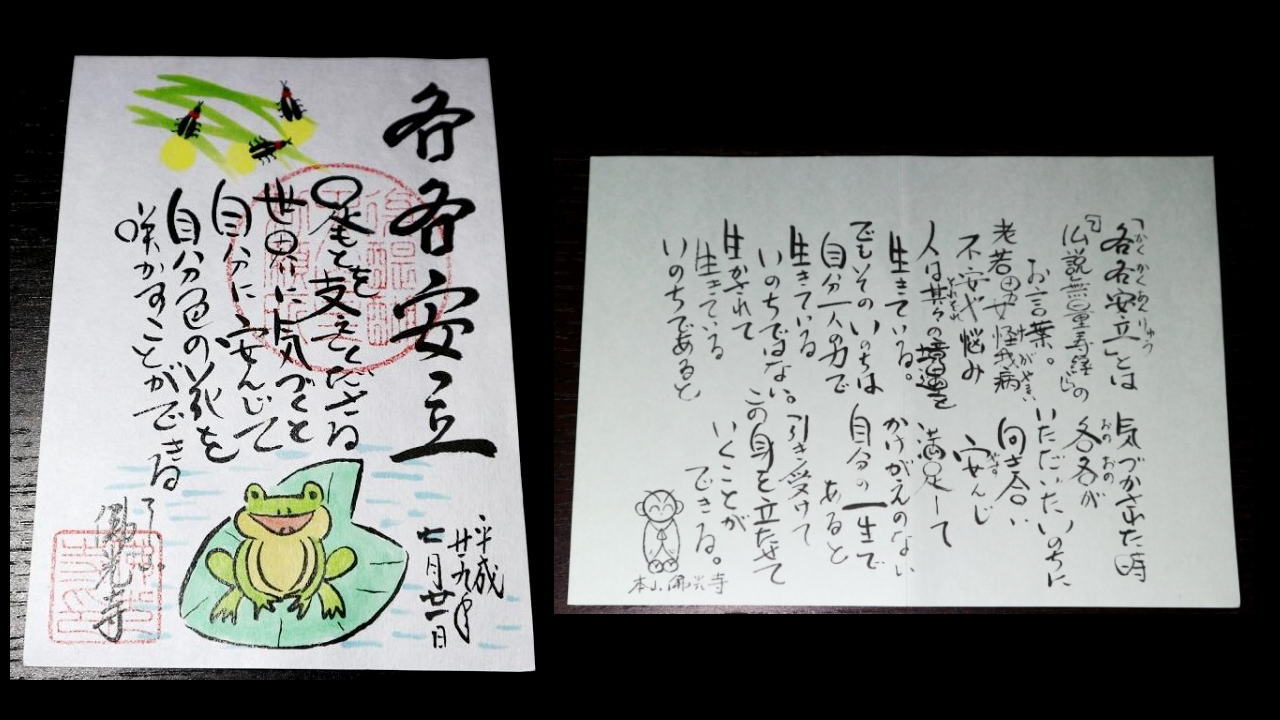 各各安立
足もとを支えてくださる
世界に気づくと
自分に安んじて
自分色の花を
咲かすことができる
平成廿九年
七月廿一日
佛光寺
「各各安立」とは
かくかくあんりゅう
『仏説無量寿経』の
お言葉。
老若男女 怪我病
不安や悩み
人は其々の境遇を
生きている。
でもそのいのちは
自分一人の力で
生きている
いのちではない。
生かされて
生きている
いのちであると
気づかされた時
各各が
おのおの
いただいたいのちに
向き合い
安んじ
満足して
かけがえのない
自分の一生で
あると
引き受けて
この身を立たせて
いくことが
できる。
本山 佛光寺